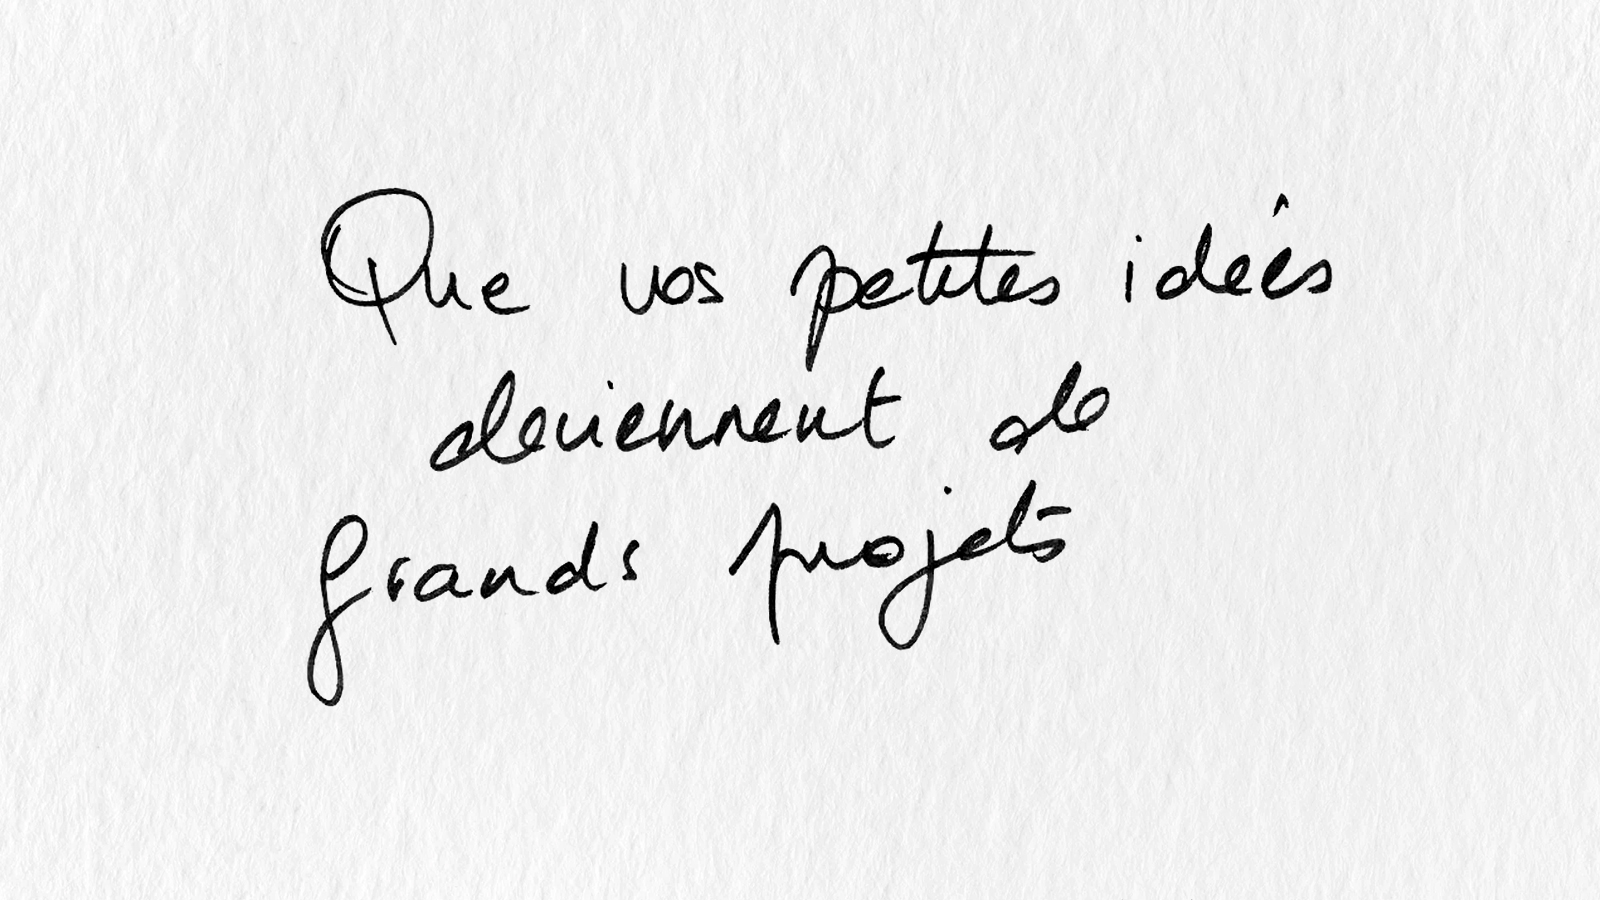 Que vos petites idées
deviennent de
grands projets